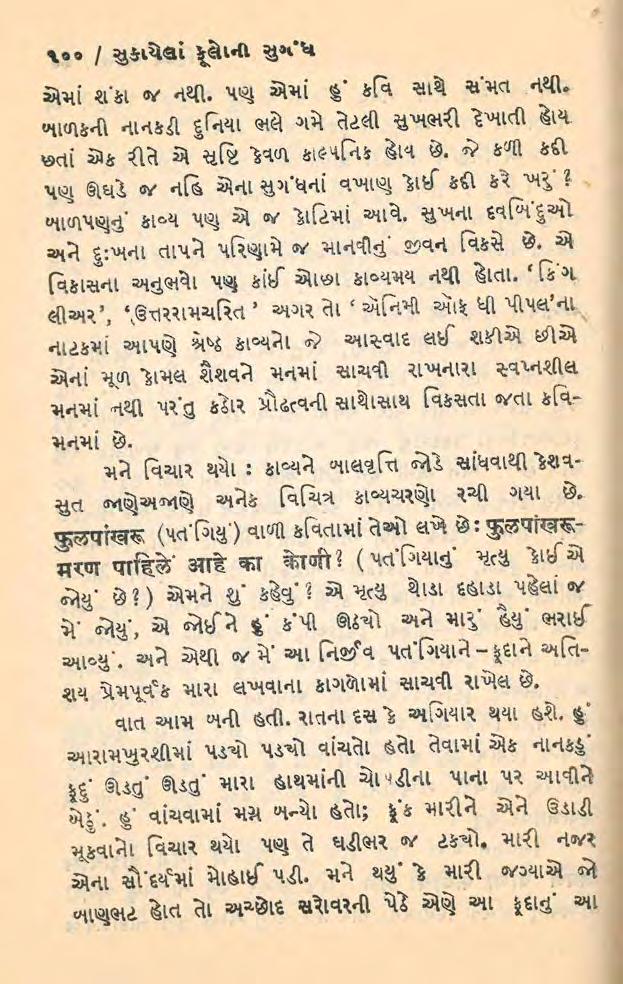 ૧૦૦ / સુકાયેલાં ફૂલોની સુગંધ
એમાં શંકા જ નથી. પણ એમાં હું કવિ સાથે સંમત નથી.
બાળકની નાનકડી દુનિયા ભલે ગમે તેટલી સુખભરી દેખાતી હોય
છતાં એક રીતે એ સૃષ્ટિ કેવળ કાલ્પનિક હોય છે. જે કળી કદી
પણ ઊઘડે જ નહિ એના સુગંધનાં વખાણ કોઈ કદી કરે ખરું ?
બાળપણનું કાવ્ય પણ એ જ કોટિમાં આવે. સુખના દવબિંદુઓ
અને દુઃખના તાપને પરિણામે જ માનવીનું જીવન વિકસે છે. એ
વિકાસના અનુભવો પણ કાંઈ ઓછા કાવ્યમય નથી હોતા. ‘ કિંગ
લીઅર’, ‘ઉત્તરરામચરિત ’ અગર તો ‘ ઍનિમી ઑફ ધી પીપલ’ના
નાટકમાં આપણે શ્રેષ્ઠ કાવ્યનો જે આસ્વાદ લઈ શકીએ છીએ
એનાં મૂળ કોમલ શૈશવને મનમાં સાચવી રાખનારા સ્વપ્નશીલ
મનમાં નથી પરંતુ કઠોર પ્રૌઢત્વની સાથોસાથ વિકસતા જતા કવિ-
મનમાં છે.
મને વિચાર થયો : કાવ્યને બાલવૃત્તિ જોડે સાંધવાથી કેશવ-
સુત જાણેઅજાણે અનેક વિચિત્ર કાવ્યચરણો રચી ગયા છે.
फुलपांखरू (પતંગિયું) વાળી કવિતામાં તેઓ લખે છે: फुलपांखरू-
मरण पाहिलें आहे का कोणी? ( પતંગિયાનું મૃત્યુ કોઈ એ
જોયું છે?) એમને શું કહેવું ? એ મૃત્યુ થોડા દહાડા પહેલાં જ
મેં જોયું, એ જોઈને હું કંપી ઊઠ્યો અને મારું હૈયું ભરાઈ
આવ્યું. અને એથી જ મેં આ નિર્જીવ પતંગિયાને – કૂદાને અતિ-
શય પ્રેમપૂર્વક મારા લખવાના કાગળોમાં સાચવી રાખેલ છે.
વાત આમ બની હતી. રાતના દસ કે અગિયાર થયા હશે. હું
આરામખુરશીમાં પડ્યો પડ્યો વાંચતો હતો તેવામાં એક નાનકડું
ફૂદું ઊડતું ઊડતું મારા હાથમાંની ચોપડીના પાના પર આવીને
બેઠું. હું વાંચવામાં મગ્ન બન્યો હતો; ફૂંક મારીને એને ઉડાડી
મૂકવાનો વિચાર થયો પણ તે ઘડીભર જ ટક્યો. મારી નજર
એના સૌંદર્યમાં મોહાઈ પડી. મને થયું કે મારી જગ્યાએ જો
બાણભટ હોત તો અચ્છોદ સરોવરની પેઠે એણે આ ફૂદાનું આ